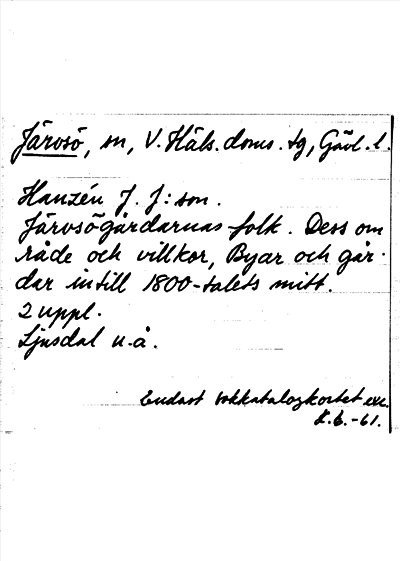 Järvsö, sn, V. Häls. doms. tg, Gävl. l.
Hanzén J. J:son.
Järvsögårdarnas folk. Dess om
råde och villkor, Byar och går-
dar intill 1800-talets mitt.
2 uppl.
Ljusdal u.å.
Endast bokkatalogkortet exc.
K.6.-61.